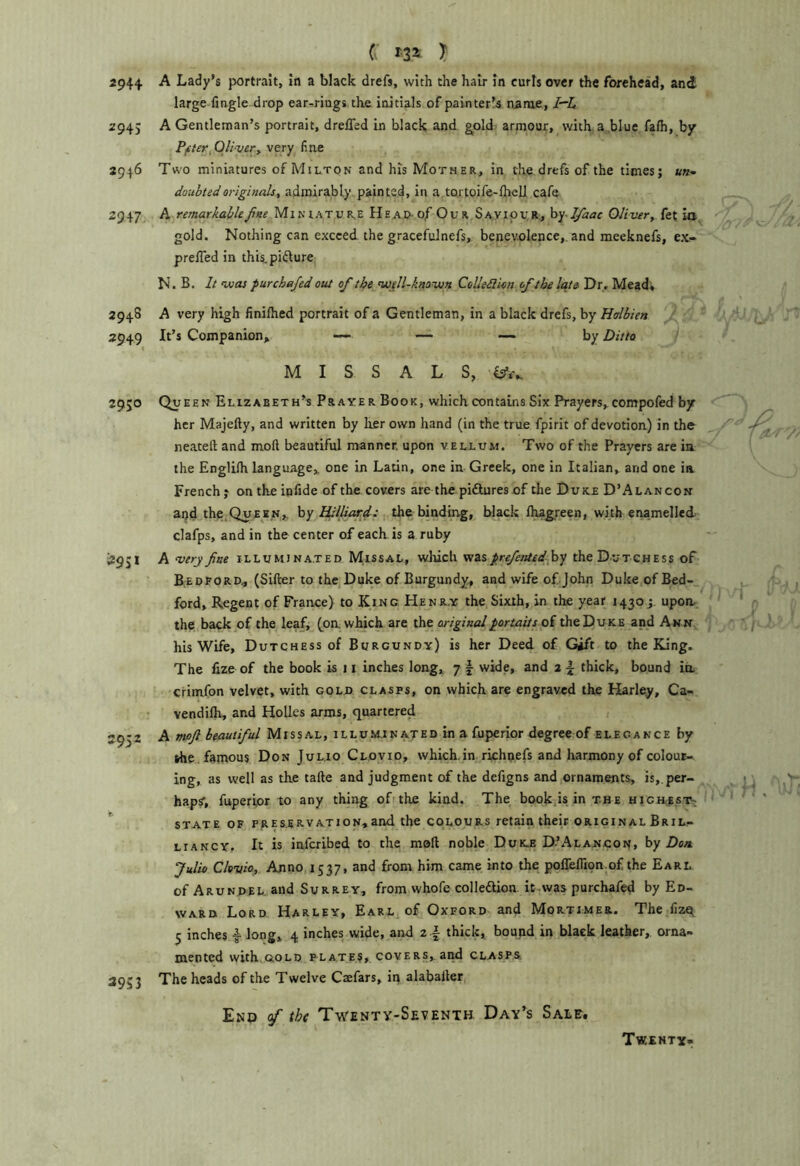 ( 132 )
2944 A Lady's portrait, in a black dreſs, with the hair in curls over the forehead, and
large ſingle drop ear-rings the initials of painter's name, I-L
2945 A Gentleman's portrait, dreſſed in black and gold armour, with a blue ſaſh, by
Peter Oliver, very fine
2946 Two miniatures of MILTON and his MOTHER, in the dreſs of the times; un-
doubted originals, admirably painted, in a tortoiſe-ſhell caſe
2947 A remarkable fine MINIATURE HEAD of OUR SAVIOUR, by Iſaac Oliver, ſet in
gold. Nothing can exceed the gracefulneſs, benevolence, and meekneſs, ex-
preſſed in this picture
N. B. It was purchaſed out of the well-known Collection of the late Dr. Mead.
2948 A very high finiſhed portrait of a Gentleman, in a black dreſs, by Holbien
2949 It's Companion, — — — by Ditto
MISSALS, &c.
2950 QUEEN ELIZABETH'S PRAYER BOOK, which contains Six Prayers, compoſed by
her Majeſty, and written by her own hand (in the true ſpirit of devotion) in the
neateſt and moſt beautiful manner upon VELLUM. Two of the Prayers are in
the Engliſh language, one in Latin, one in Greek, one in Italian, and one in
French; on the inſide of the covers are the pictures of the DUKE D'ALANCON
and the QUEEN, by Hilliard: the binding, black ſhagreen, with enamelled
claſps, and in the center of each is a ruby
2951 A very fine ILLUMINATED MISSAL, which was preſented by the DUTCHESS of
BEDFORD, (Siſter to the Duke of Burgundy, and wife of John Duke of Bed-
ford, Regent of France) to KING HENRY the Sixth, in the year 1430; upon
the back of the leaf, (on which are the original portaits of the DUKE and ANN
his Wife, DUTCHESS of BURGUNDY) is her Deed of Gift to the King.
The ſize of the book is 11 inches long, 7 ½ wide, and 2 ½ thick, bound in
crimſon velvet, with GOLD CLASPS, on which are engraved the Harley, Ca-
vendiſh, and Holles arms, quartered
2952 A moſt beautiful MISSAL, ILLUMINATED in a ſuperior degree of ELEGANCE by
the famous DON JULIO CLOVIO, which in richneſs and harmony of colour-
ing, as well as the taſte and judgment of the deſigns and ornaments, is, per-
haps, ſuperior to any thing of the kind. The book is in THE HIGHEST
STATE OF PRESERVATION, and the COLOURS retain their ORIGINAL BRIL-
LIANCY. It is inſcribed to the moſt noble DUKE D'ALANCON, by Don
Julio Clovio, Anno 1537, and from him came into the poſſeſſion of the EARL
of ARUNDEL and SURREY, from whoſe collection it was purchaſed by ED-
WARD LORD HARLEY, EARL of OXFORD and MORTIMER. The ſize
5 inches ½ long, 4 inches wide, and 2 ½ thick, bound in black leather, orna-
mented with GOLD PLATES, COVERS, and CLASPS
2953 The heads of the Twelve Cæſars, in alabaſter
END of the TWENTY-SEVENTH DAY'S SALE.
TWENTY-